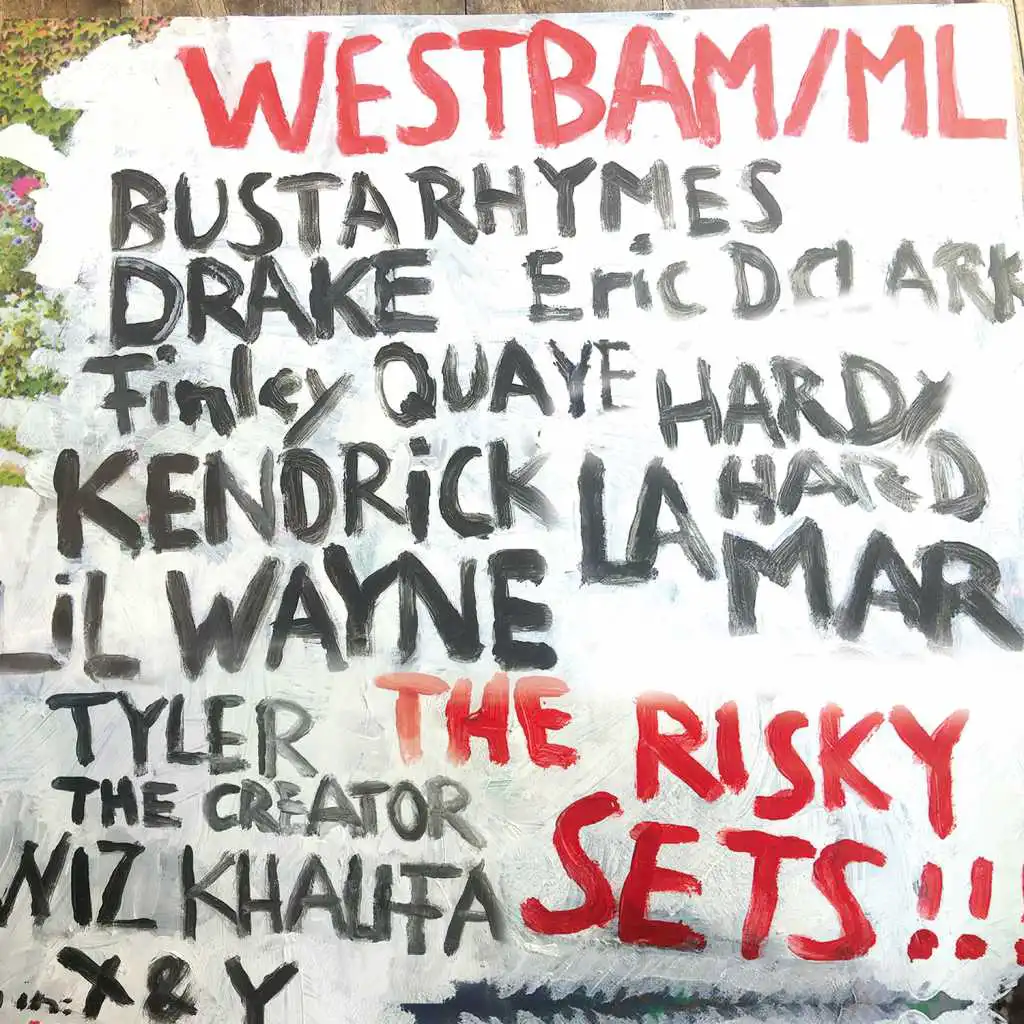 WESTBAM/ML
BUSTA RHYMES
DRAKE Eric D CLARK
Finley QUAYE HARDY
HARD
KENDRICK LAMAR
LiL WAYNE
TYLER
THE CREATOR
THE RISKY
SETS!!!
WIZ KHALIFA
in: X & Y